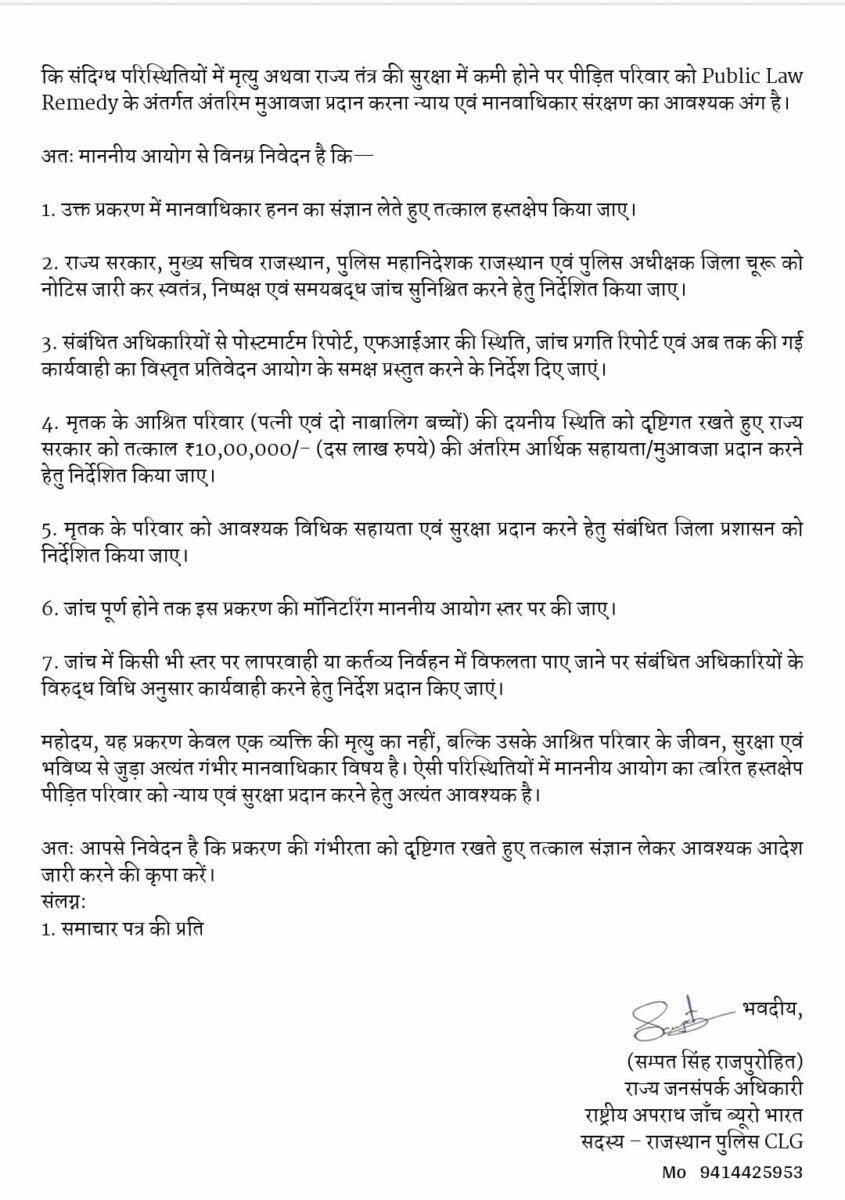 कि संदिग्ध परिस्थितियों में मृत्यु अथवा राज्य तंत्र की सुरक्षा में कमी होने पर पीड़ित परिवार को Public Law
Remedy के अंतर्गत अंतरिम मुआवजा प्रदान करना न्याय एवं मानवाधिकार संरक्षण का आवश्यक अंग है।
अतः माननीय आयोग से विनम्र निवेदन है कि—
1. उक्त प्रकरण में मानवाधिकार हनन का संज्ञान लेते हुए तत्काल हस्तक्षेप किया जाए।
2. राज्य सरकार, मुख्य सचिव राजस्थान, पुलिस महानिदेशक राजस्थान एवं पुलिस अधीक्षक जिला चूरू को
नोटिस जारी कर स्वतंत्र, निष्पक्ष एवं समयबद्ध जांच सुनिश्चित करने हेतु निर्देशित किया जाए।
3. संबंधित अधिकारियों से पोस्टमार्टम रिपोर्ट, एफआईआर की स्थिति, जांच प्रगति रिपोर्ट एवं अब तक की गई
कार्यवाही का विस्तृत प्रतिवेदन आयोग के समक्ष प्रस्तुत करने के निर्देश दिए जाएं।
4. मृतक के आश्रित परिवार (पत्नी एवं दो नाबालिग बच्चों) की दयनीय स्थिति को दृष्टिगत रखते हुए राज्य
सरकार को तत्काल ₹10,00,000/- (दस लाख रुपये) की अंतरिम आर्थिक सहायता/मुआवजा प्रदान करने
हेतु निर्देशित किया जाए।
5. मृतक के परिवार को आवश्यक विधिक सहायता एवं सुरक्षा प्रदान करने हेतु संबंधित जिला प्रशासन को
निर्देशित किया जाए।
6. जांच पूर्ण होने तक इस प्रकरण की मॉनिटरिंग माननीय आयोग स्तर पर की जाए।
7. जांच में किसी भी स्तर पर लापरवाही या कर्तव्य निर्वहन में विफलता पाए जाने पर संबंधित अधिकारियों के
विरुद्ध विधि अनुसार कार्यवाही करने हेतु निर्देश प्रदान किए जाएं।
महोदय, यह प्रकरण केवल एक व्यक्ति की मृत्यु का नहीं, बल्कि उसके आश्रित परिवार के जीवन, सुरक्षा एवं
भविष्य से जुड़ा अत्यंत गंभीर मानवाधिकार विषय है। ऐसी परिस्थितियों में माननीय आयोग का त्वरित हस्तक्षेप
पीड़ित परिवार को न्याय एवं सुरक्षा प्रदान करने हेतु अत्यंत आवश्यक है।
अतः आपसे निवेदन है कि प्रकरण की गंभीरता को दृष्टिगत रखते हुए तत्काल संज्ञान लेकर आवश्यक आदेश
जारी करने की कृपा करें।
संलग्न:
1. समाचार पत्र की प्रति
भवदीय,
(सम्पत सिंह राजपुरोहित)
राज्य जनसंपर्क अधिकारी
राष्ट्रीय अपराध जाँच ब्यूरो भारत
सदस्य – राजस्थान पुलिस CLG
Mo 9414425953